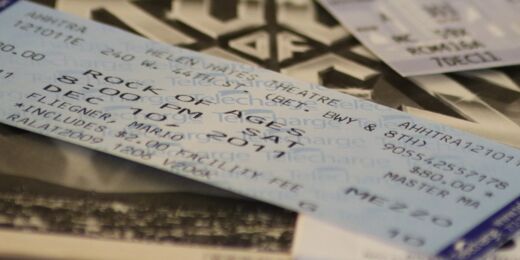 AHHTRA
121011E
HELEN HAYES THEATRE
240 W. 44TH ST (BET. BWY & 8TH)
ROCK OF AGES
8:00 PM SAT
DEC 10, 2011
FLIEGNER, MARIO
*INCLUDES $2.00 FACILITY FEE
RALAT2009 1206 V2006W
AHHTRA121011
905542557178
$80.00 *
MASTER MA
MEZZO
G 10
Telecharge
OF
RCM116A
7DEC11